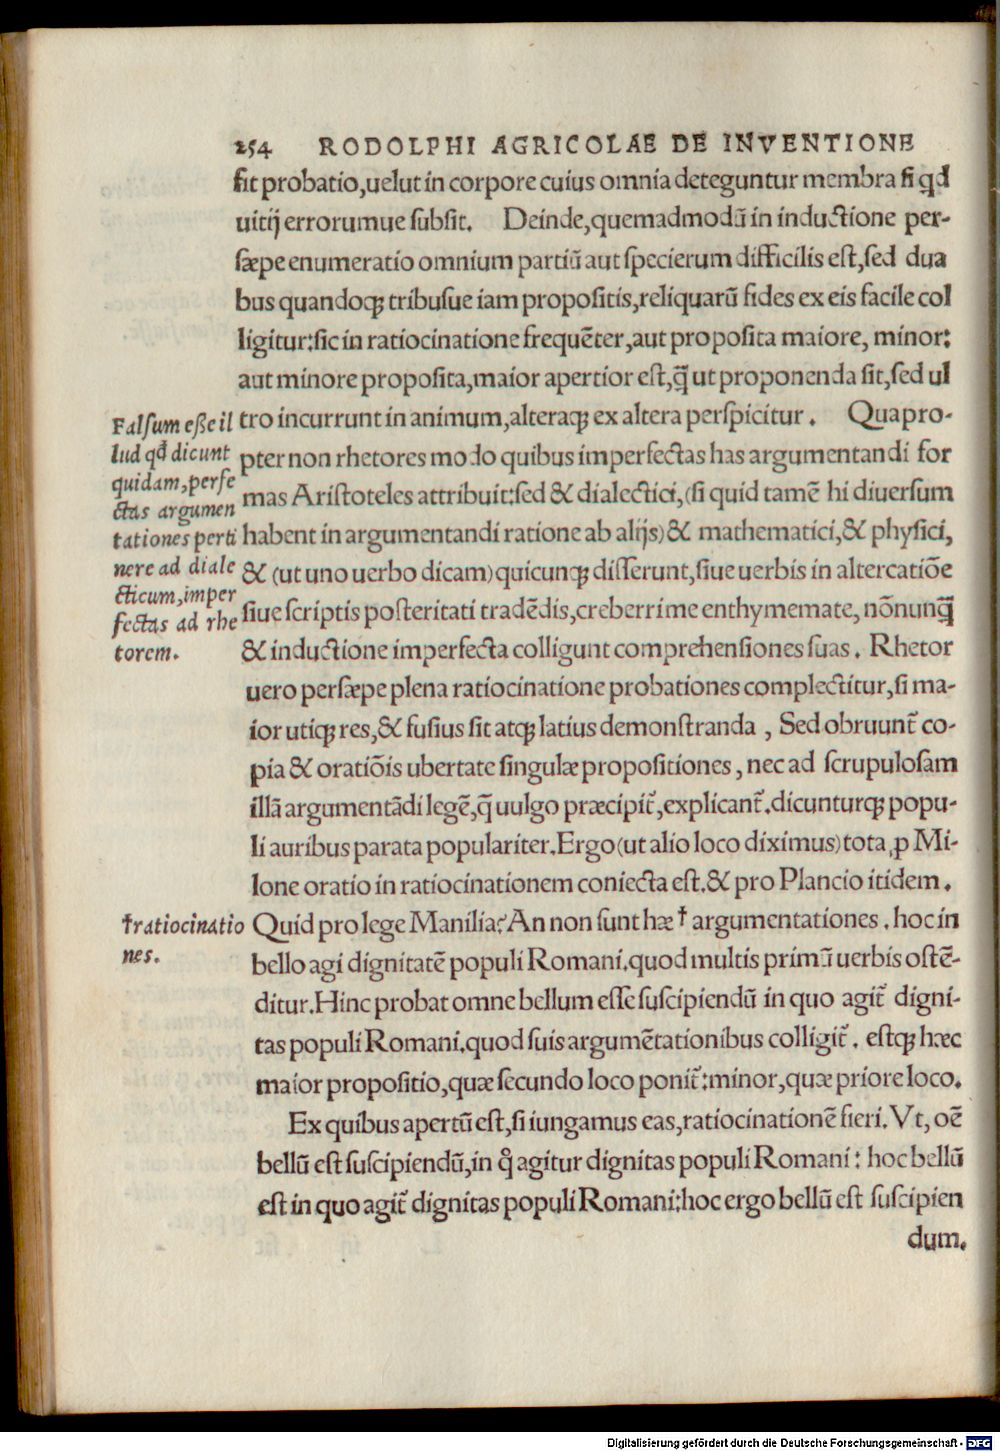 254 RODOLPHI AGRICOLAE DE INVENTIONE
fit probatio,uelut in corpore cuius omnia deteguntur membra si qd
uitij errorumue subsit. Deinde,quemadmodũ in inductione per-
sæpe enumeratio omnium partiũ aut specierum difficilis est,sed dua
bus quandoqꝫ tribusue iam propositis,reliquarũ fides ex eis facile col
ligitur:sic in ratiocinatione frequẽter,aut proposita maiore, minor:
aut minore proposita,maior apertior est,q̃ ut proponenda sit,sed ul
tro incurrunt in animum,alteraqꝫ ex altera perspicitur. Quapro-
pter non rhetores modo quibus imperfectas has argumentandi for
mas Aristoteles attribuit:sed & dialectici,(si quid tamẽ hi diuersum
habent in argumentandi ratione ab alijs)& mathematici,& physici,
& (ut uno uerbo dicam)quicunqꝫ disserunt,siue uerbis in altercatiõe
siue scriptis posteritati tradẽdis,creberrime enthymemate, nõnunq̃
& inductione imperfecta colligunt comprehensiones suas. Rhetor
uero persæpe plena ratiocinatione probationes complectitur,si ma-
ior utiqꝫ res,& fusius sit atqꝫ latius demonstranda , Sed obruunt̃ co-
pia & oratiõis ubertate singulæ propositiones, nec ad scrupulosam
illã argumentãdi legẽ,q̃ uulgo præcipit̃,explicant̃.dicunturqꝫ popu-
li auribus parata populariter.Ergo(ut alio loco diximus)tota ꝓ Mi-
lone oratio in ratiocinationem coniecta est.& pro Plancio itidem.
Quid pro lege Manilia? An non sunt hæ † argumentationes. hoc in
bello agi dignitatẽ populi Romani.quod multis primũ uerbis ostẽ-
ditur.Hinc probat omne bellum esse suscipiendũ in quo agit̃ digni-
tas populi Romani.quod suis argumẽtationibus colligit̃. estqꝫ hæc
maior propositio,quæ secundo loco ponit̃:minor,quæ priore loco.
Ex quibus apertũ est,si iungamus eas,ratiocinationẽ fieri. Vt, oẽ
bellũ est suscipiendũ,in q̊ agitur dignitas populi Romani: hoc bellũ
est in quo agit̃ dignitas populi Romani:hoc ergo bellũ est suscipien
dum.
Falsum esse il
lud qd dicunt
quidam,perfe
ctas argumen
tationes perti
nere ad diale
cticum,imper
fectas ad rhe
torem.
†ratiocinatio
nes.
Digitalisierung gefördert durch die Deutsche Forschungsgemeinschaft - DFG